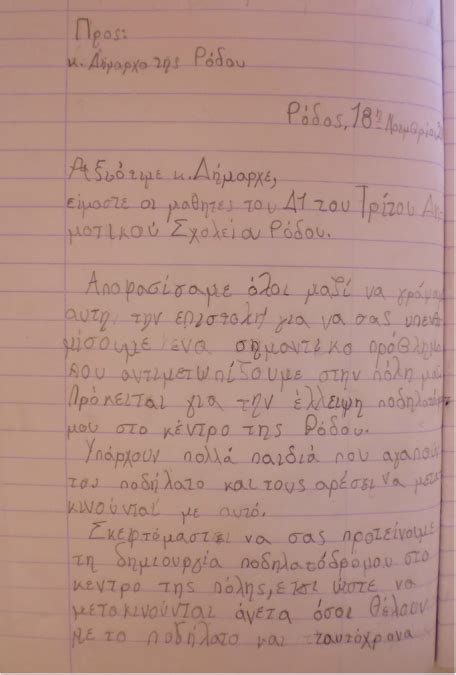 Προς:
κ. Δήμαρχο της Ρόδου
Ρόδος, 18η Νοεμβρίου 2
Αξιότιμε κ. Δήμαρχε,
είμαστε οι μαθητες του Δ1 του Τρίτου Δη
μοτικού Σχολείου Ρόδου.
Αποφασίσαμε όλοι μαζί να γράψου
αυτη την επιστολή για να σας υπενθ
μίσουμε ένα σημαντικο πρόβλημα
που αντιμετωπίζουμε στην πόλη μας
Πρόκειται για την έλλειψη ποδηλατόδρο
μου στο κέντρο της Ρόδου.
Υπάρχουν πολλά παιδιά που αγαπούν
το ποδήλατο και τους αρέσει να μετα
κινούνται με αυτό.
Σκεφτόμαστε να σας προτείνουμε
τη δημιουργία ποδηλατόδρομου στο
κεντρο της πόλης, ετσι ώστε να
μετακινούνται άνετα όσοι θέλουν
με το ποδήλατο και ταυτόχρονα